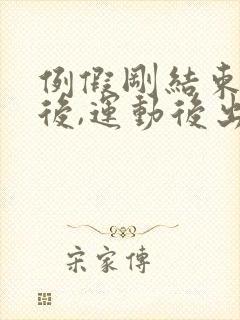 例假剛結束
後,運動後出
宋家傳